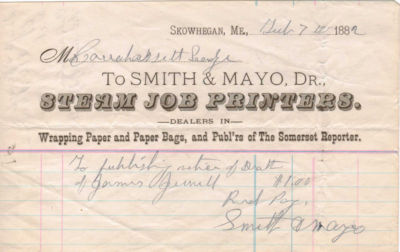 SKOWHEGAN, ME., Feb 7 1882
M
To SMITH & MAYO, DR.,
STEAM JOB PRINTERS.
—DEALERS IN—
Wrapping Paper and Paper Bags, and Publ'rs of The Somerset Reporter.
To publishing notice of Death
of James $1.00
Recd Pay,
Smith & Mayo